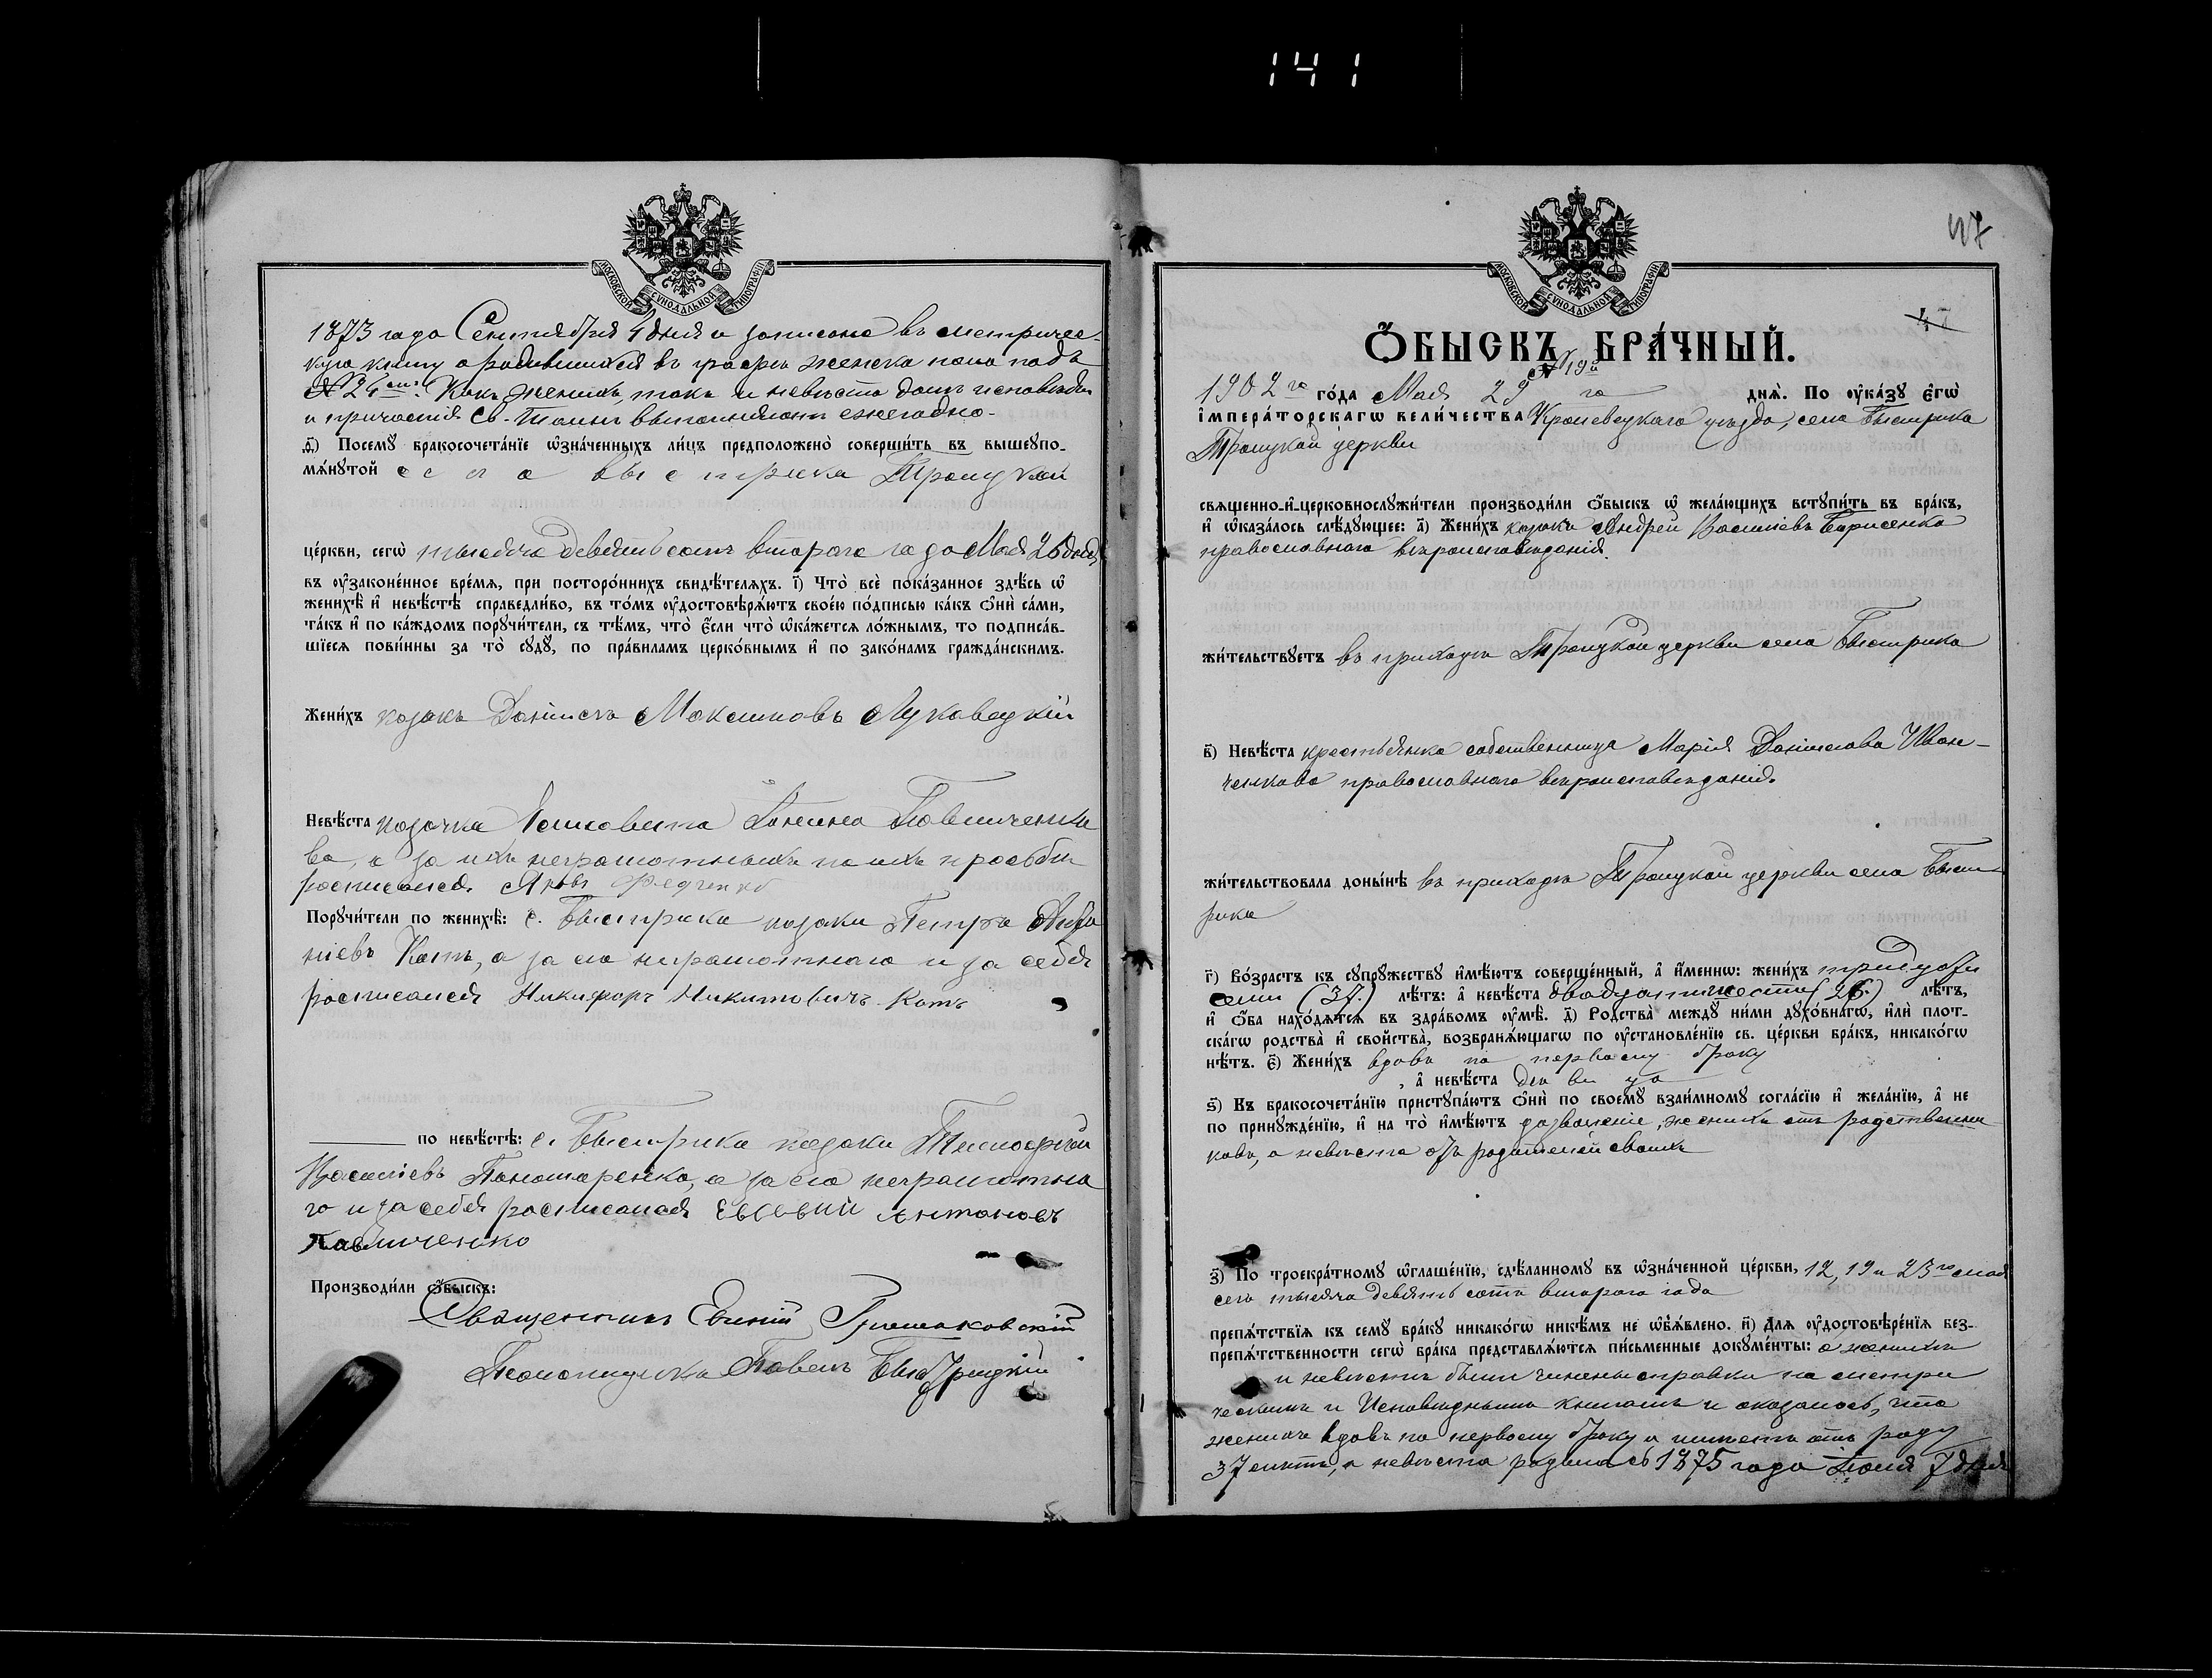 141
МОСКОВСКОЙ СѴНОДАЛЬНОЙ ТИПОГРАФІИ
1873 года Сентября 4 дня и записана въ метричес-
кую книгу о родившихся въ графѣ женска пола подъ
№ 24 Какъ женихъ, такъ и невѣста долгъ исповѣди
и причастія Св. Таинъ выполняютъ ежегодно.
ѳ҃) Посемꙋ бракосочета́нїе ѡ҆зна́ченныхъ ли́цъ предположено̀ соверши́ть въ вышеꙋпо-
мѧ́нꙋтой села Быстрика Троицкой
це́ркви, сегѡ̀ тысяча девятьсотъ второго года Мая 26 дня,
въ ᲂу҆законе́нное вре́мѧ, при посторо́ннихъ свидѣ́телѧхъ. і҃) Что̀ всѐ пока́занное здѣ́сь ѡ҆
женихѣ̀ и҆ невѣ́стѣ справедли́во, въ то́мъ ᲂу҆достовѣрѧ́ютъ свое́ю по́дписью ка́къ ѻ҆нѝ са́ми,
та́къ и҆ по ка́ждомъ порꙋчи́тели, съ тѣ́мъ, что̀ є҆́сли что̀ ѡ҆ка́жетсѧ ло́жнымъ, то подписа́в-
шїесѧ пови́нны за то̀ сꙋдꙋ̀, по пра́виламъ церко́внымъ и҆ по зако́намъ гражда́нскимъ.
Жени́хъ козакъ Даніилъ Максимовъ Луковецкій
Невѣ́ста козачка Елисавета Павличенко
ва, а за ихъ неграмотныхъ по ихъ просьбѣ
росписался Яковъ Федченко
Порꙋчи́тели по женихѣ̀: с. Быстрика козаки Петръ
ніевъ Котъ, а за его неграмотного и за себя
росписался Никифоръ Никитовичъ Котъ
по невѣ́стѣ: с. Быстрика козаки Тимофей
Василіевъ Пономаренко, а за его неграмотна
го и за себя росписался Евсевий Антоновъ
Павличенко
Производи́ли ѻ҆́быскъ:
Священникъ Евгеній Грошаковскій
Псаломщикъ Павелъ Быстрицкій
47
МОСКОВСКОЙ СѴНОДАЛЬНОЙ ТИПОГРАФІИ
47
Ѻ҆БЫСКЪ БРА́ЧНЫЙ.
№ 19й
1902го го́да Мая 29 го днѧ̀. По ᲂу҆ка́зꙋ Є҆гѡ̀
і҆мпера́торскагѡ вели́чества Кролевецкаго уѣзда, села Быстрика
Троицкой церкви
свѧще́нно-и҆-церковнослꙋжи́тели производи́ли ѻ҆́быскъ ѡ҆ жела́ющихъ встꙋпи́ть въ бра́къ,
и҆ ѡ҆каза́лось слѣ́дꙋющее: а҃) Жени́хъ козакъ Андрей Василіевъ Борисенко
православнаго вѣроисповѣданія.
жи́тельствꙋетъ въ приходѣ Троицкой церкви села Быстрика
в҃) Невѣ́ста крестьянка собственница Марія Даніилова Иван-
ченкова православнаго вѣроисповѣданія.
жи́тельствовала доны́нѣ въ приходѣ Троицкой церкви села Быст-
рика
г҃) Во́зрастъ къ сꙋпрꙋ́жествꙋ и҆мѣ́ютъ соверше́нный, а҆ и҆́меннѡ: жени́хъ тридцати
семи (37.) лѣ́тъ: а҆ невѣ́ста двадцати шести (26.) лѣ́тъ,
и҆ ѻ҆́ба нахо́дѧтсѧ въ здра́вомъ ᲂу҆мѣ̀. д҃) Родства̀ междꙋ̀ ни́ми дꙋхо́внагѡ, и҆лѝ плот-
ска́гѡ родства̀ и҆ свойства̀, возбранѧ́ющагѡ по ᲂу҆становле́нїю св. це́ркви бра́къ, никако́гѡ
нѣ́тъ. є҃) Жени́хъ вдовъ по первому браку
, а҆ невѣ́ста дѣвица
ѕ҃) Къ бракосочета́нїю пристꙋпа́ютъ ѻ҆нѝ по своемꙋ̀ взаи́мномꙋ согла́сїю и҆ жела́нїю, а҆ не
по принꙋжде́нїю, и҆ на то̀ и҆мѣ́ютъ дозволеніе, женихъ отъ родственни
ковъ, а невѣста отъ родителей своихъ
з҃) По троекра́тномꙋ ѡ҆глаше́нїю, сдѣ́ланномꙋ въ ѡ҆зна́ченной це́ркви, 12, 19 и 23го мая
сего тысяча девятьсотъ второго года
препѧ́тствїѧ къ семꙋ̀ бра́кꙋ никако́гѡ никѣ́мъ не ѡ҆б̾ѧ́влено. и҃) Длѧ ᲂу҆достовѣре́нїѧ без-
препѧ́тственности сегѡ̀ бра́ка представлѧ́ютсѧ пи́сьменные докꙋме́нты: о женихѣ
и невѣстѣ были чинены справки по метри
ческимъ и Исповѣднымъ книгамъ и оказалось, что
женихъ вдовъ по первому браку и имѣетъ отъ роду
37 лѣтъ, а невѣста родилась 1875 года Іюля 7 дня